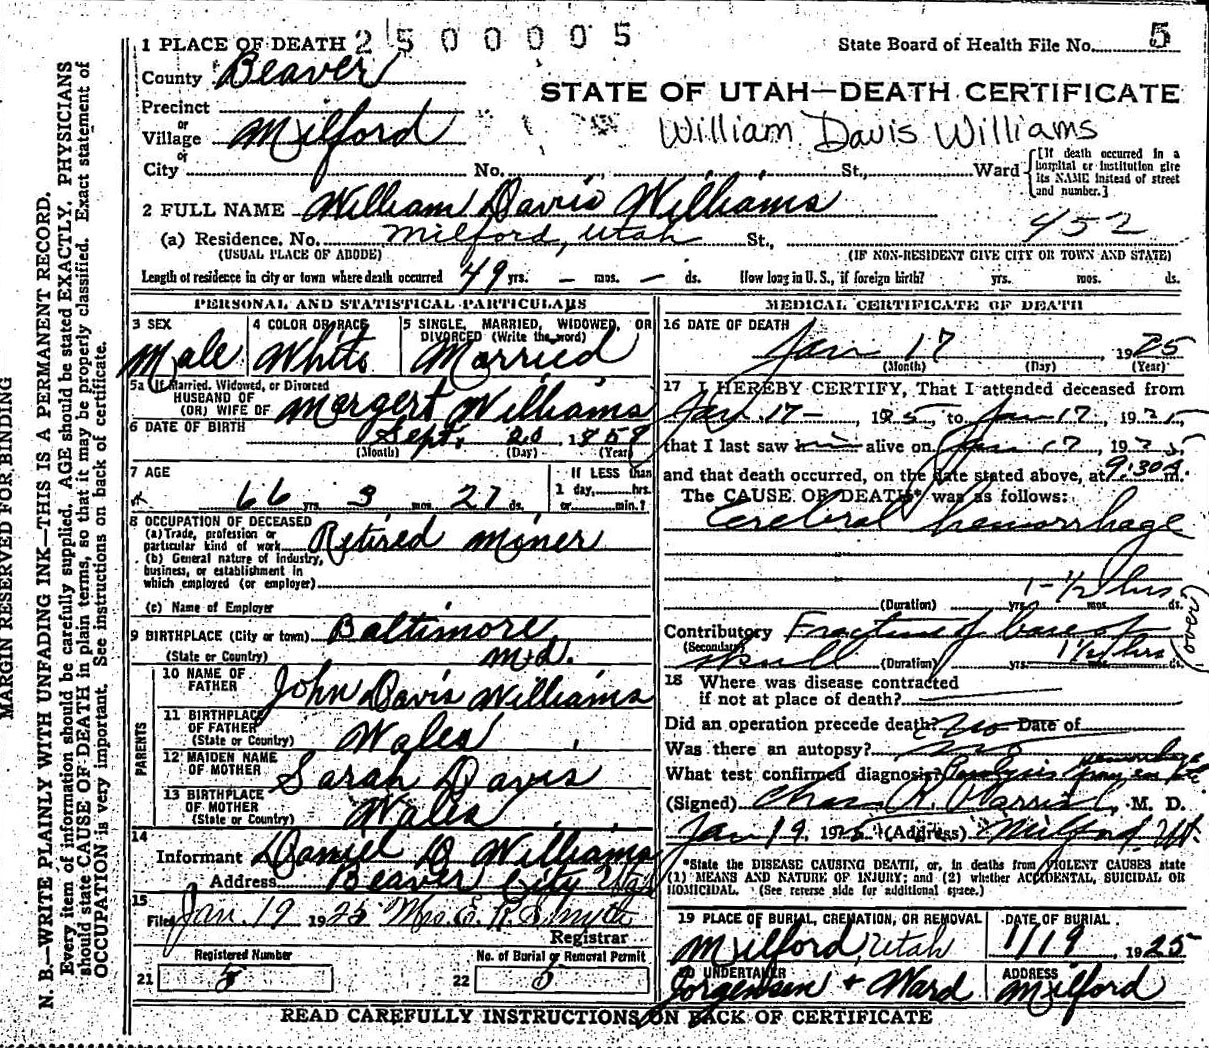 2500005
1 PLACE OF DEATH
State Board of Health File No. 5
County Beaver
STATE OF UTAH—DEATH CERTIFICATE
Precinct
or
Village Milford
William Davis Williams
or
City No. St., Ward
[If death occurred in a hospital or institution give its NAME instead of street and number.]
2 FULL NAME William Davis Williams
452
(a) Residence, No. Milford, Utah St.,
(USUAL PLACE OF ABODE) (IF NON-RESIDENT GIVE CITY OR TOWN AND STATE)
Length of residence in city or town where death occurred 49 yrs. — mos. — ds. How long in U.S., if foreign birth? yrs. mos. ds.
PERSONAL AND STATISTICAL PARTICULARS
3 SEX
Male
4 COLOR OR RACE
White
5 SINGLE, MARRIED, WIDOWED, OR DIVORCED (Write the word)
Married
5a If Married, Widowed, or Divorced
HUSBAND OF
(OR) WIFE OF Margert Williams
6 DATE OF BIRTH Sept. 20 1858
(Month) (Day) (Year)
7 AGE
66 yrs. 3 mos. 27 ds.
If LESS than
1 day, hrs.
or min.?
8 OCCUPATION OF DECEASED
(a) Trade, profession or
particular kind of work Retired Miner
(b) General nature of industry,
business, or establishment in
which employed (or employer)
(c) Name of Employer
9 BIRTHPLACE (City or town) Baltimore,
(State or Country) Md.
PARENTS
10 NAME OF
FATHER John Davis Williams
11 BIRTHPLACE
OF FATHER
(State or Country) Wales
12 MAIDEN NAME
OF MOTHER Sarah Davis
13 BIRTHPLACE
OF MOTHER
(State or Country) Wales
14
Informant Daniel D Williams
Address Beaver City Utah
15
Filed Jan. 19 1925 Mrs. E. R. Smyth
Registrar
Registered Number
21 5
No. of Burial or Removal Permit
22 5
MEDICAL CERTIFICATE OF DEATH
16 DATE OF DEATH
Jan 17, 1925
(Month) (Day) (Year)
17 I HEREBY CERTIFY, That I attended deceased from
Jan. 17 – 1925, to Jan 17, 1925,
that I last saw him alive on Jan 17, 1925
and that death occurred, on the date stated above, at 9:30 a. m.
The CAUSE OF DEATH* was as follows:
Cerebral hemorrhage
1-½ hrs
(Duration) yrs. mos. ds.
Contributory Fracture of base of
(Secondary) skull (Duration) yrs. 1½ hrs mos. ds.
(over)
18 Where was disease contracted
if not at place of death?
Did an operation precede death? No Date of
Was there an autopsy? no
What test confirmed diagnosis? Paralysis hemorrhage from
(Signed) Chas R. Parrish, M. D.
Jan 19, 1925 (Address) Milford, Ut.
*State the DISEASE CAUSING DEATH, or, in deaths from VIOLENT CAUSES state
(1) MEANS AND NATURE OF INJURY; and (2) whether ACCIDENTAL, SUICIDAL OR
HOMICIDAL. (See reverse side for additional space.)
19 PLACE OF BURIAL, CREMATION, OR REMOVAL
Milford, Utah
DATE OF BURIAL
1/19 1925
20 UNDERTAKER
Jorgensen + Ward
ADDRESS
Milford
READ CAREFULLY INSTRUCTIONS ON BACK OF CERTIFICATE
MARGIN RESERVED FOR BINDING
N. B.—WRITE PLAINLY WITH UNFADING INK—THIS IS A PERMANENT RECORD.
Every item of information should be carefully supplied. AGE should be stated EXACTLY. PHYSICIANS
should state CAUSE OF DEATH in plain terms, so that it may be properly classified. Exact statement of
OCCUPATION is very important. See instructions on back of certificate.